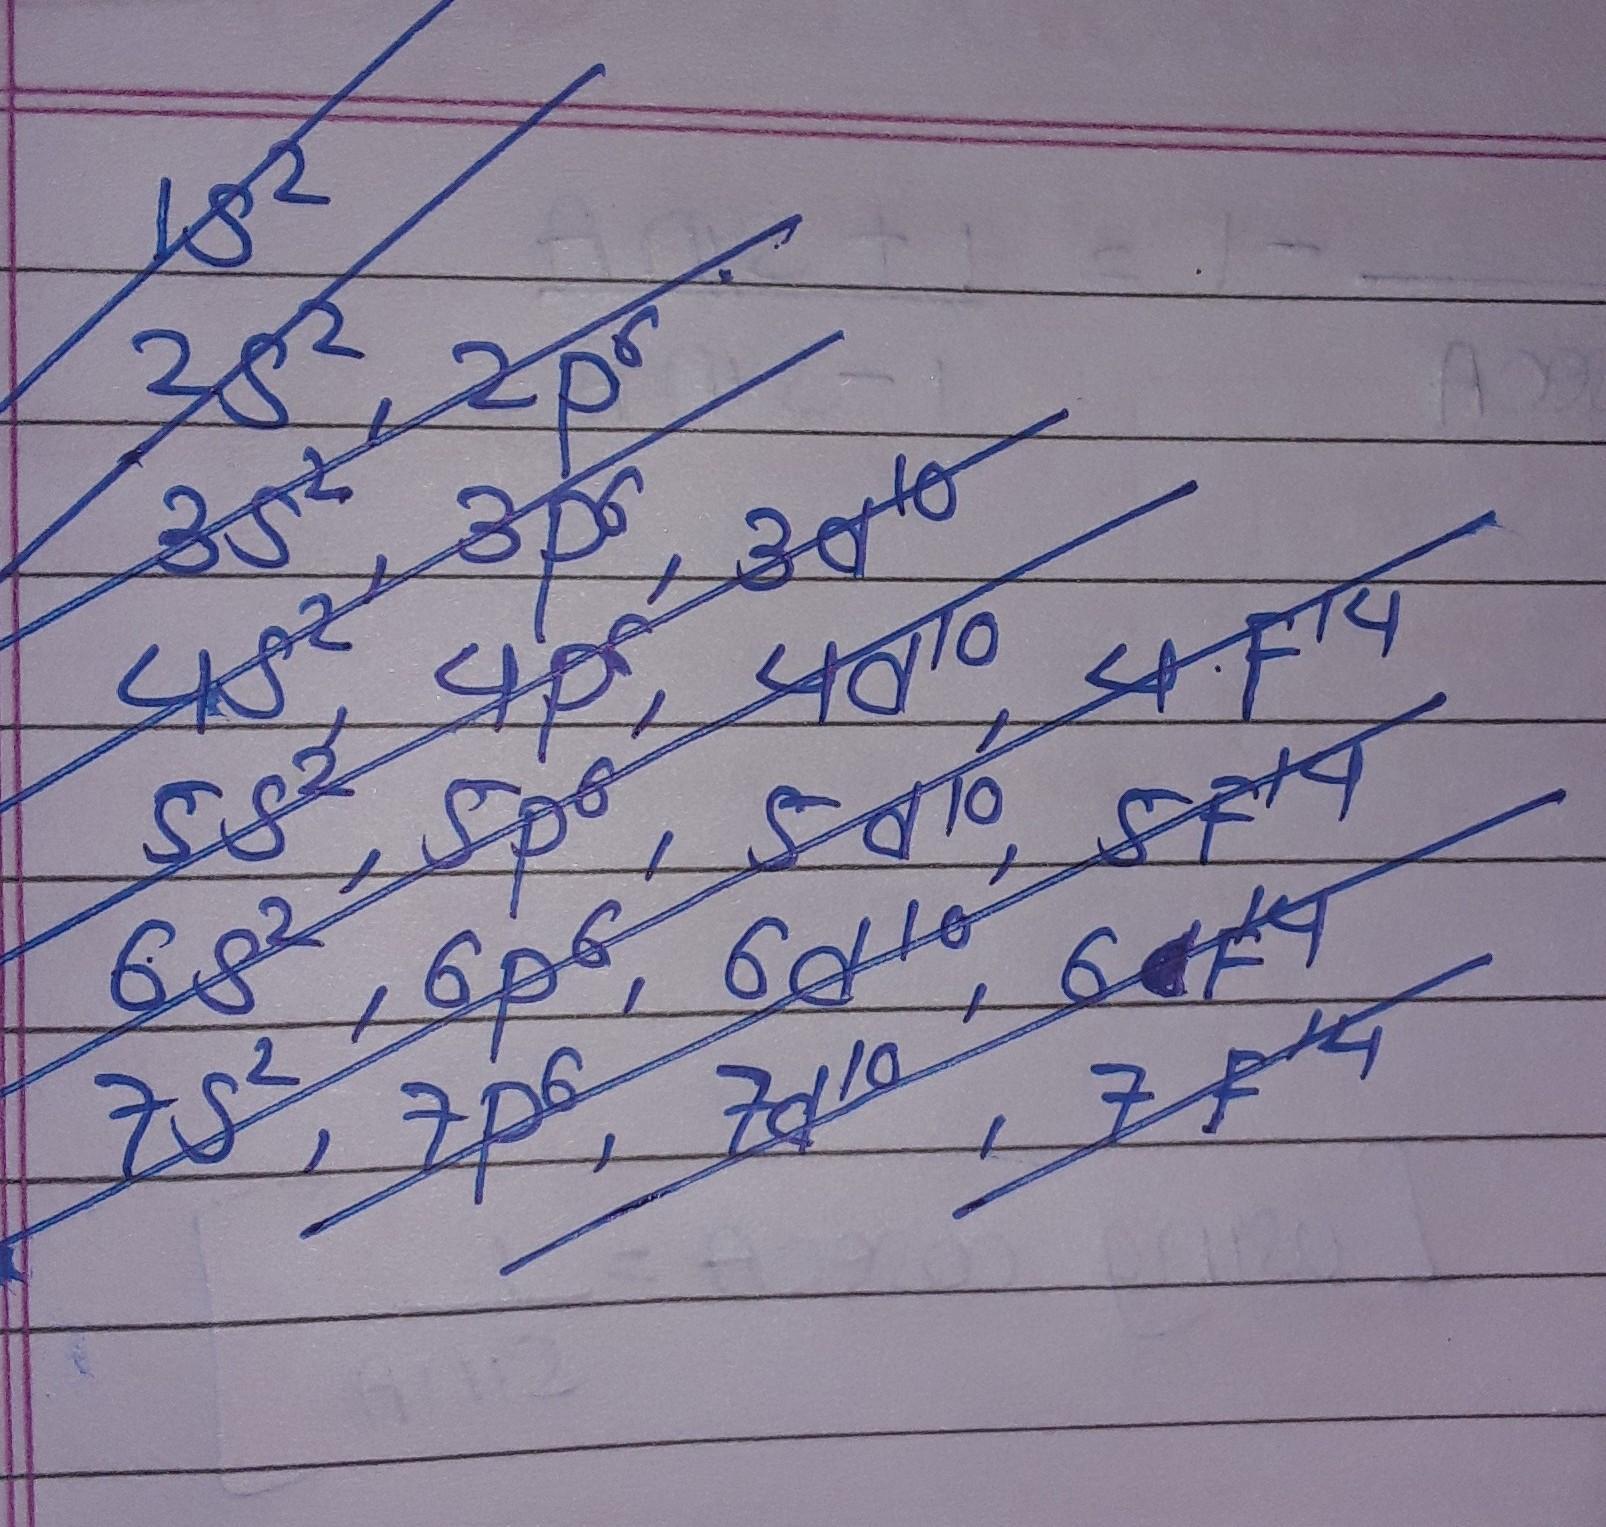 1s²
2s², 2p⁶
3s², 3p⁶, 3d¹⁰
4s², 4p⁶, 4d¹⁰, 4F¹⁴
5s², 5p⁶, 5d¹⁰, 5F¹⁴
6s², 6p⁶, 6d¹⁰, 6F¹⁴
7s², 7p⁶, 7d¹⁰, 7F¹⁴